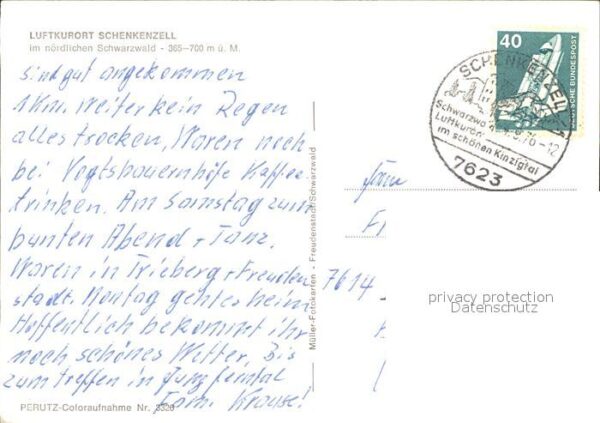 LUFTKURORT SCHENKENZELL
im nördlichen Schwarzwald - 365-700 m ü. M.
sind gut angekommen
1 Km. weiter kein Regen
alles trocken, Waren noch
bei Vogtsbauernhöfe Kaffee
trinken. Am Samstag zum
bunten Abend + Tanz.
Waren in Triberg + Freuden
stadt. Montag gehts heim
Hoffentlich bekommt ihr
noch schönes Wetter, Bis
zum treffen in
Fam. Krause!
PERUTZ-Coloraufnahme Nr. 3320
Müller-Fotokarten - Freudenstadt/Schwarzwald
40
DEUTSCHE BUNDESPOST
SCHENKENZELL 1
Luftkurort
im schönen Kinzigtal
7623
Fam
7614
privacy protection
Datenschutz